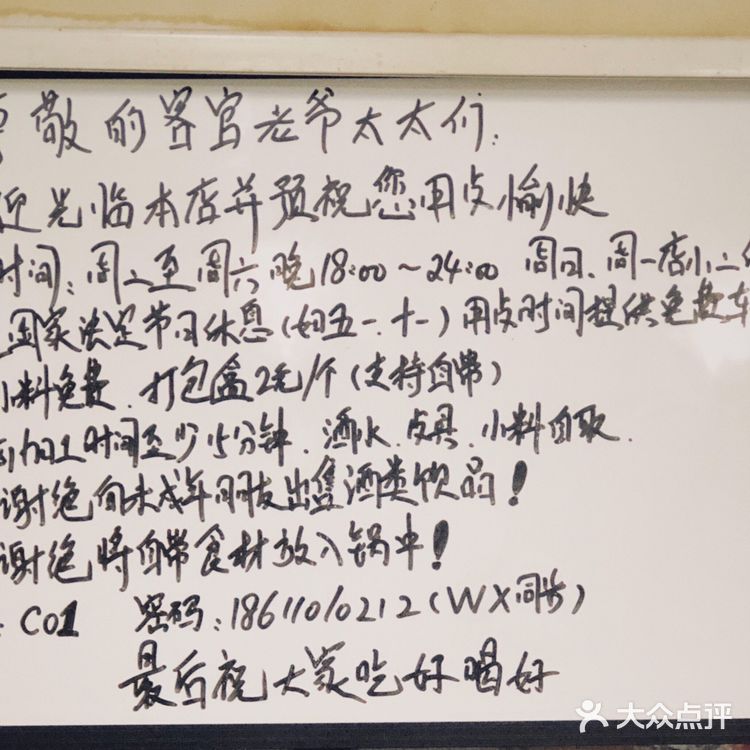 尊敬的客官老爷太太们:
迎光临本店并预祝您用点愉快
时间:周二至周六晚18:00~24:00 周日、周一店小二休
国家法定节日休息(如五一、十一)用点时间提供免费车
小料免费.打包盒2元/个(支持自带)
加工时间至少15分钟.酒水.点具.小料自取.
谢绝向未成年朋友出售酒类饮品!
谢绝将自带食材放入锅中!
: C01 密码:18611010212(WX同步)
最后祝大家吃好喝好
大众点评